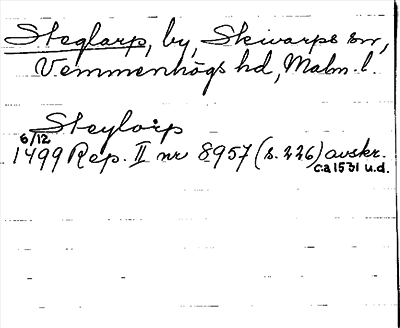 Steglarp, by, Skivarps sn,
Vemmenhögs hd, Malm. l.
Steylorp
6/12
1499 Rep. II nr 8957 (s. 226) avskr.
ca 1531 u.d.